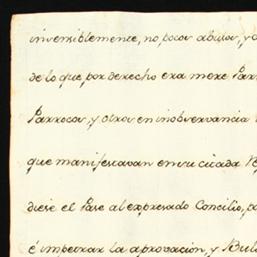 invensiblemente, no pocos abusos, y o
de lo que por derecho era mere Parr
Parrocos, y otros en inobservancia
que manifestavan en su citada
diese el Pase al expresado Concilio, p
é impetrar la aprovacion, y Bul